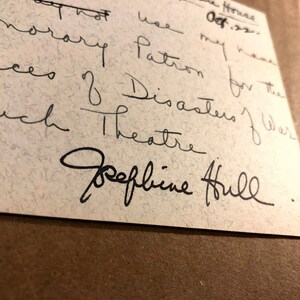 House
Oct. 22
not use my name
norary Patron for the
ces of Disasters of War
uch Theatre
Josephine Hull.